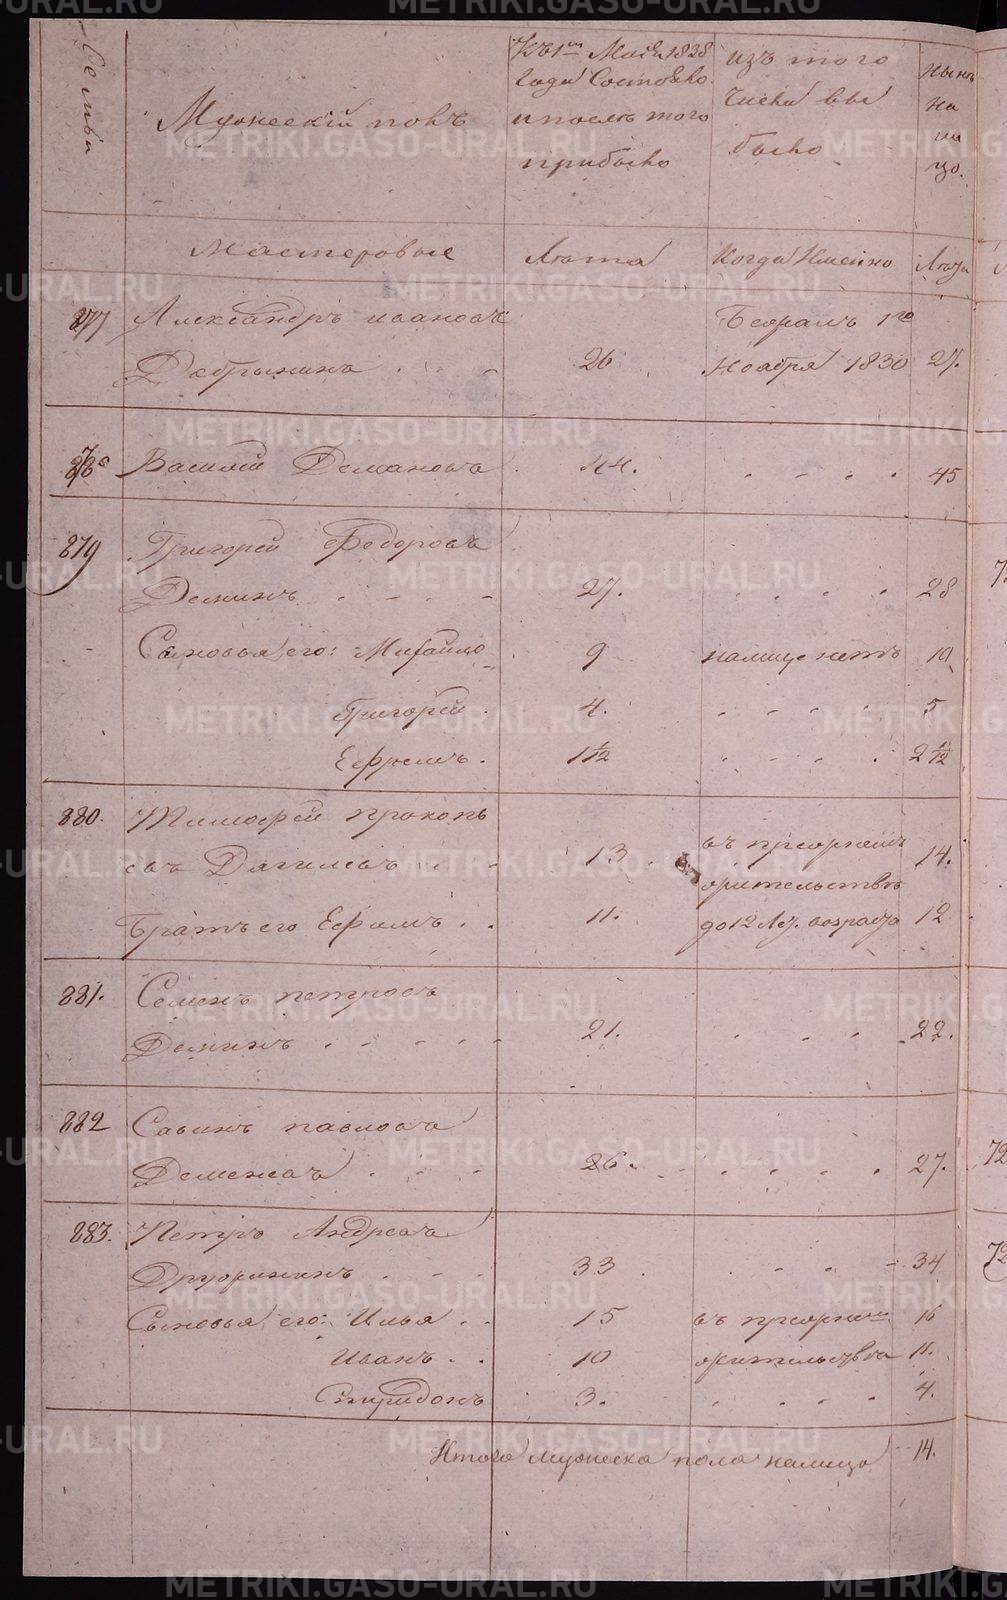 Семьи
Мужескій полъ
Къ 1му Маія 1828
года Состояло
и послѣ того
прибыло
изъ того
числа вы
было
нынѣ
на
ли
цо.
Мастеровые
Лѣта
Когда Именно
Лѣта
877
Александръ ивановъ
Добрынинъ
26
Бѣжалъ 1го
Ноября 1830
27.
878
Василий Демановъ
44.
45
879
Григорей Федоровъ
Деминъ
27.
28
Сыновья его: Михайло
9
налицо нетъ
10
Григорей
4.
5
Ефремъ
1 1/12
2 1/12
880.
Тимофей прокопь
евъ Дягилевъ
13
въ прежнемъ
14.
жительствѣ
Братъ его Ефимъ
11.
до 12 лѣт. возраста
12
881.
Семенъ петровъ
Деминъ
21.
22.
882
Савинъ павловъ
Деменевъ
26.
27.
883.
Петръ Андреевъ
Дружининъ
33
34
Сыновья его: Илья
15
въ прежнемъ
16
Иванъ
10
жительстве
11.
Спиридонъ
3.
4.
Итого Мужеска пола налицо
14.
METRIKI.GASO-URAL.RU